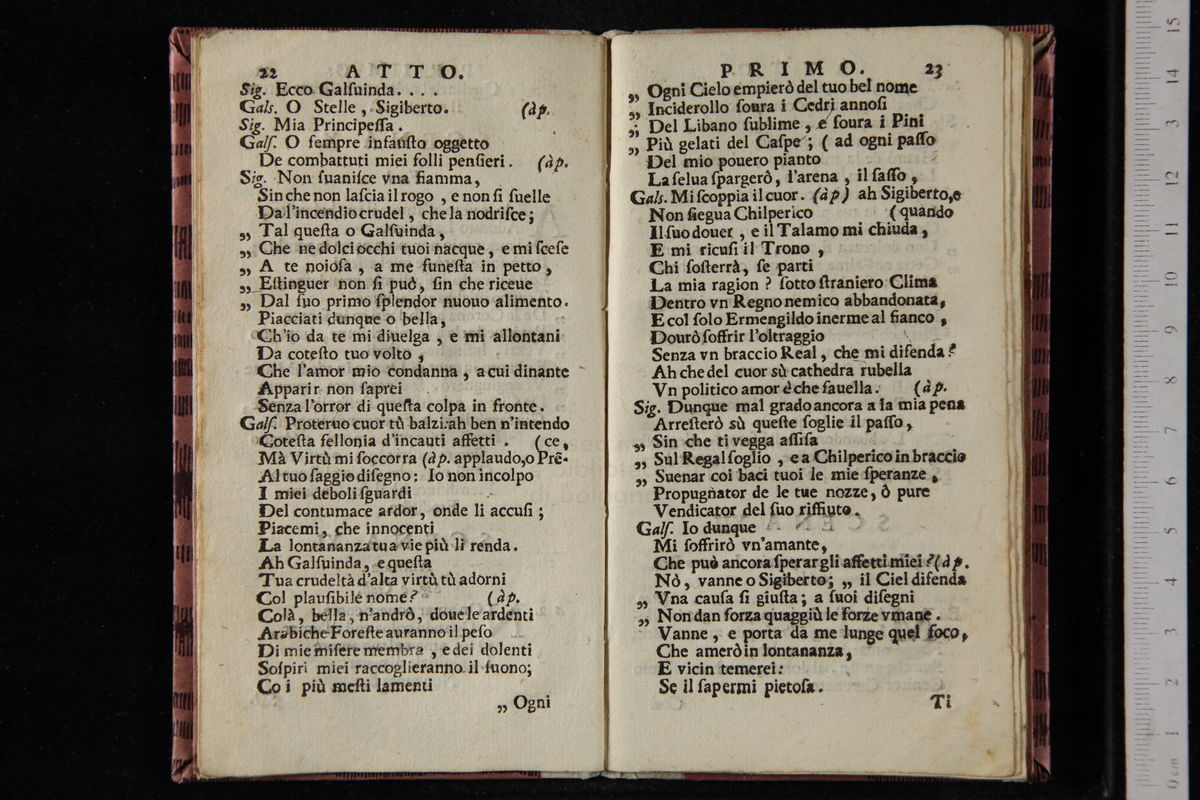 22 ATTO.
Sig. Ecco Galſuinda. . . .
Gals. O Stelle, Sigiberto. (àp.
Sig. Mia Principeſſa.
Galſ. O ſempre infauſto oggetto
De combattuti miei folli penſieri. (àp.
Sig. Non ſuaniſce vna fiamma,
Sin che non laſcia il rogo, e non ſi ſuelle
Da l'incendio crudel, che la nodriſce;
„ Tal queſta o Galſuinda,
„ Che ne dolci occhi tuoi nacque, e mi ſceſe
„ A te noioſa, a me funeſta in petto,
„ Eſtinguer non ſi può, ſin che riceue
„ Dal ſuo primo ſplendor nuouo alimento.
Piacciati dunque o bella,
Ch'io da te mi diuelga, e mi allontani
Da coteſto tuo volto,
Che l'amor mio condanna, a cui dinante
Apparir non ſaprei
Senza l'orror di queſta colpa in fronte.
Galſ. Proteruo cuor tù balzi: ah ben n'intendo
Coteſta fellonia d'incauti affetti. (ce,
Mà Virtù mi ſoccorra (àp. applaudo, o Prē-
Al tuo ſaggio diſegno: Io non incolpo
I miei deboli ſguardi
Del contumace ardor, onde li accuſi;
Piacemi, che innocenti
La lontananza tua vie più li renda.
Ah Galſuinda, e queſta
Tua crudeltà d'alta virtù tù adorni
Col plauſibile nome? (àp.
Colà, bella, n'andrò, doue le ardenti
Arabiche Foreſte auranno il peſo
Di mie miſere membra, e dei dolenti
Soſpiri miei raccoglieranno il ſuono;
Co i più meſti lamenti
„ Ogni
PRIMO. 23
„ Ogni Cielo empierò del tuo bel nome
„ Inciderollo ſoura i Cedri annoſi
„ Del Libano ſublime, e ſoura i Pini
„ Più gelati del Caſpe; (ad ogni paſſo
Del mio pouero pianto
La ſelua ſpargerò, l'arena, il ſaſſo,
Gals. Mi ſcoppia il cuor. (àp) ah Sigiberto, e
Non ſiegua Chilperico (quando
Il ſuo douer, e il Talamo mi chiuda,
E mi ricuſi il Trono,
Chi ſoſterrà, ſe parti
La mia ragion? ſotto ſtraniero Clima
Dentro vn Regno nemico abbandonata,
E col ſolo Ermengildo inerme al fianco,
Dourò ſoffrir l'oltraggio
Senza vn braccio Real, che mi difenda?
Ah che del cuor sù cathedra rubella
Vn politico amor è che fauella. (àp.
Sig. Dunque mal grado ancora a la mia pena
Arreſterò sù queſte ſoglie il paſſo,
„ Sin che ti vegga aſſiſa
„ Sul Regal ſoglio, e a Chilperico in braccio
„ Suenar coi baci tuoi le mie ſperanze,
Propugnator de le tue nozze, ò pure
Vendicator del ſuo riffiuto.
Galſ. Io dunque
Mi ſoffrirò vn'amante,
Che può ancora ſperar gli affetti miei? (àp.
Nò, vanne o Sigiberto; „ il Ciel difenda
„ Vna cauſa ſi giuſta; a ſuoi diſegni
„ Non dan forza quaggiù le forze vmane.
Vanne, e porta da me lunge quel foco,
Che amerò in lontananza,
E vicin temerei:
Se il ſapermi pietoſa.
Ti